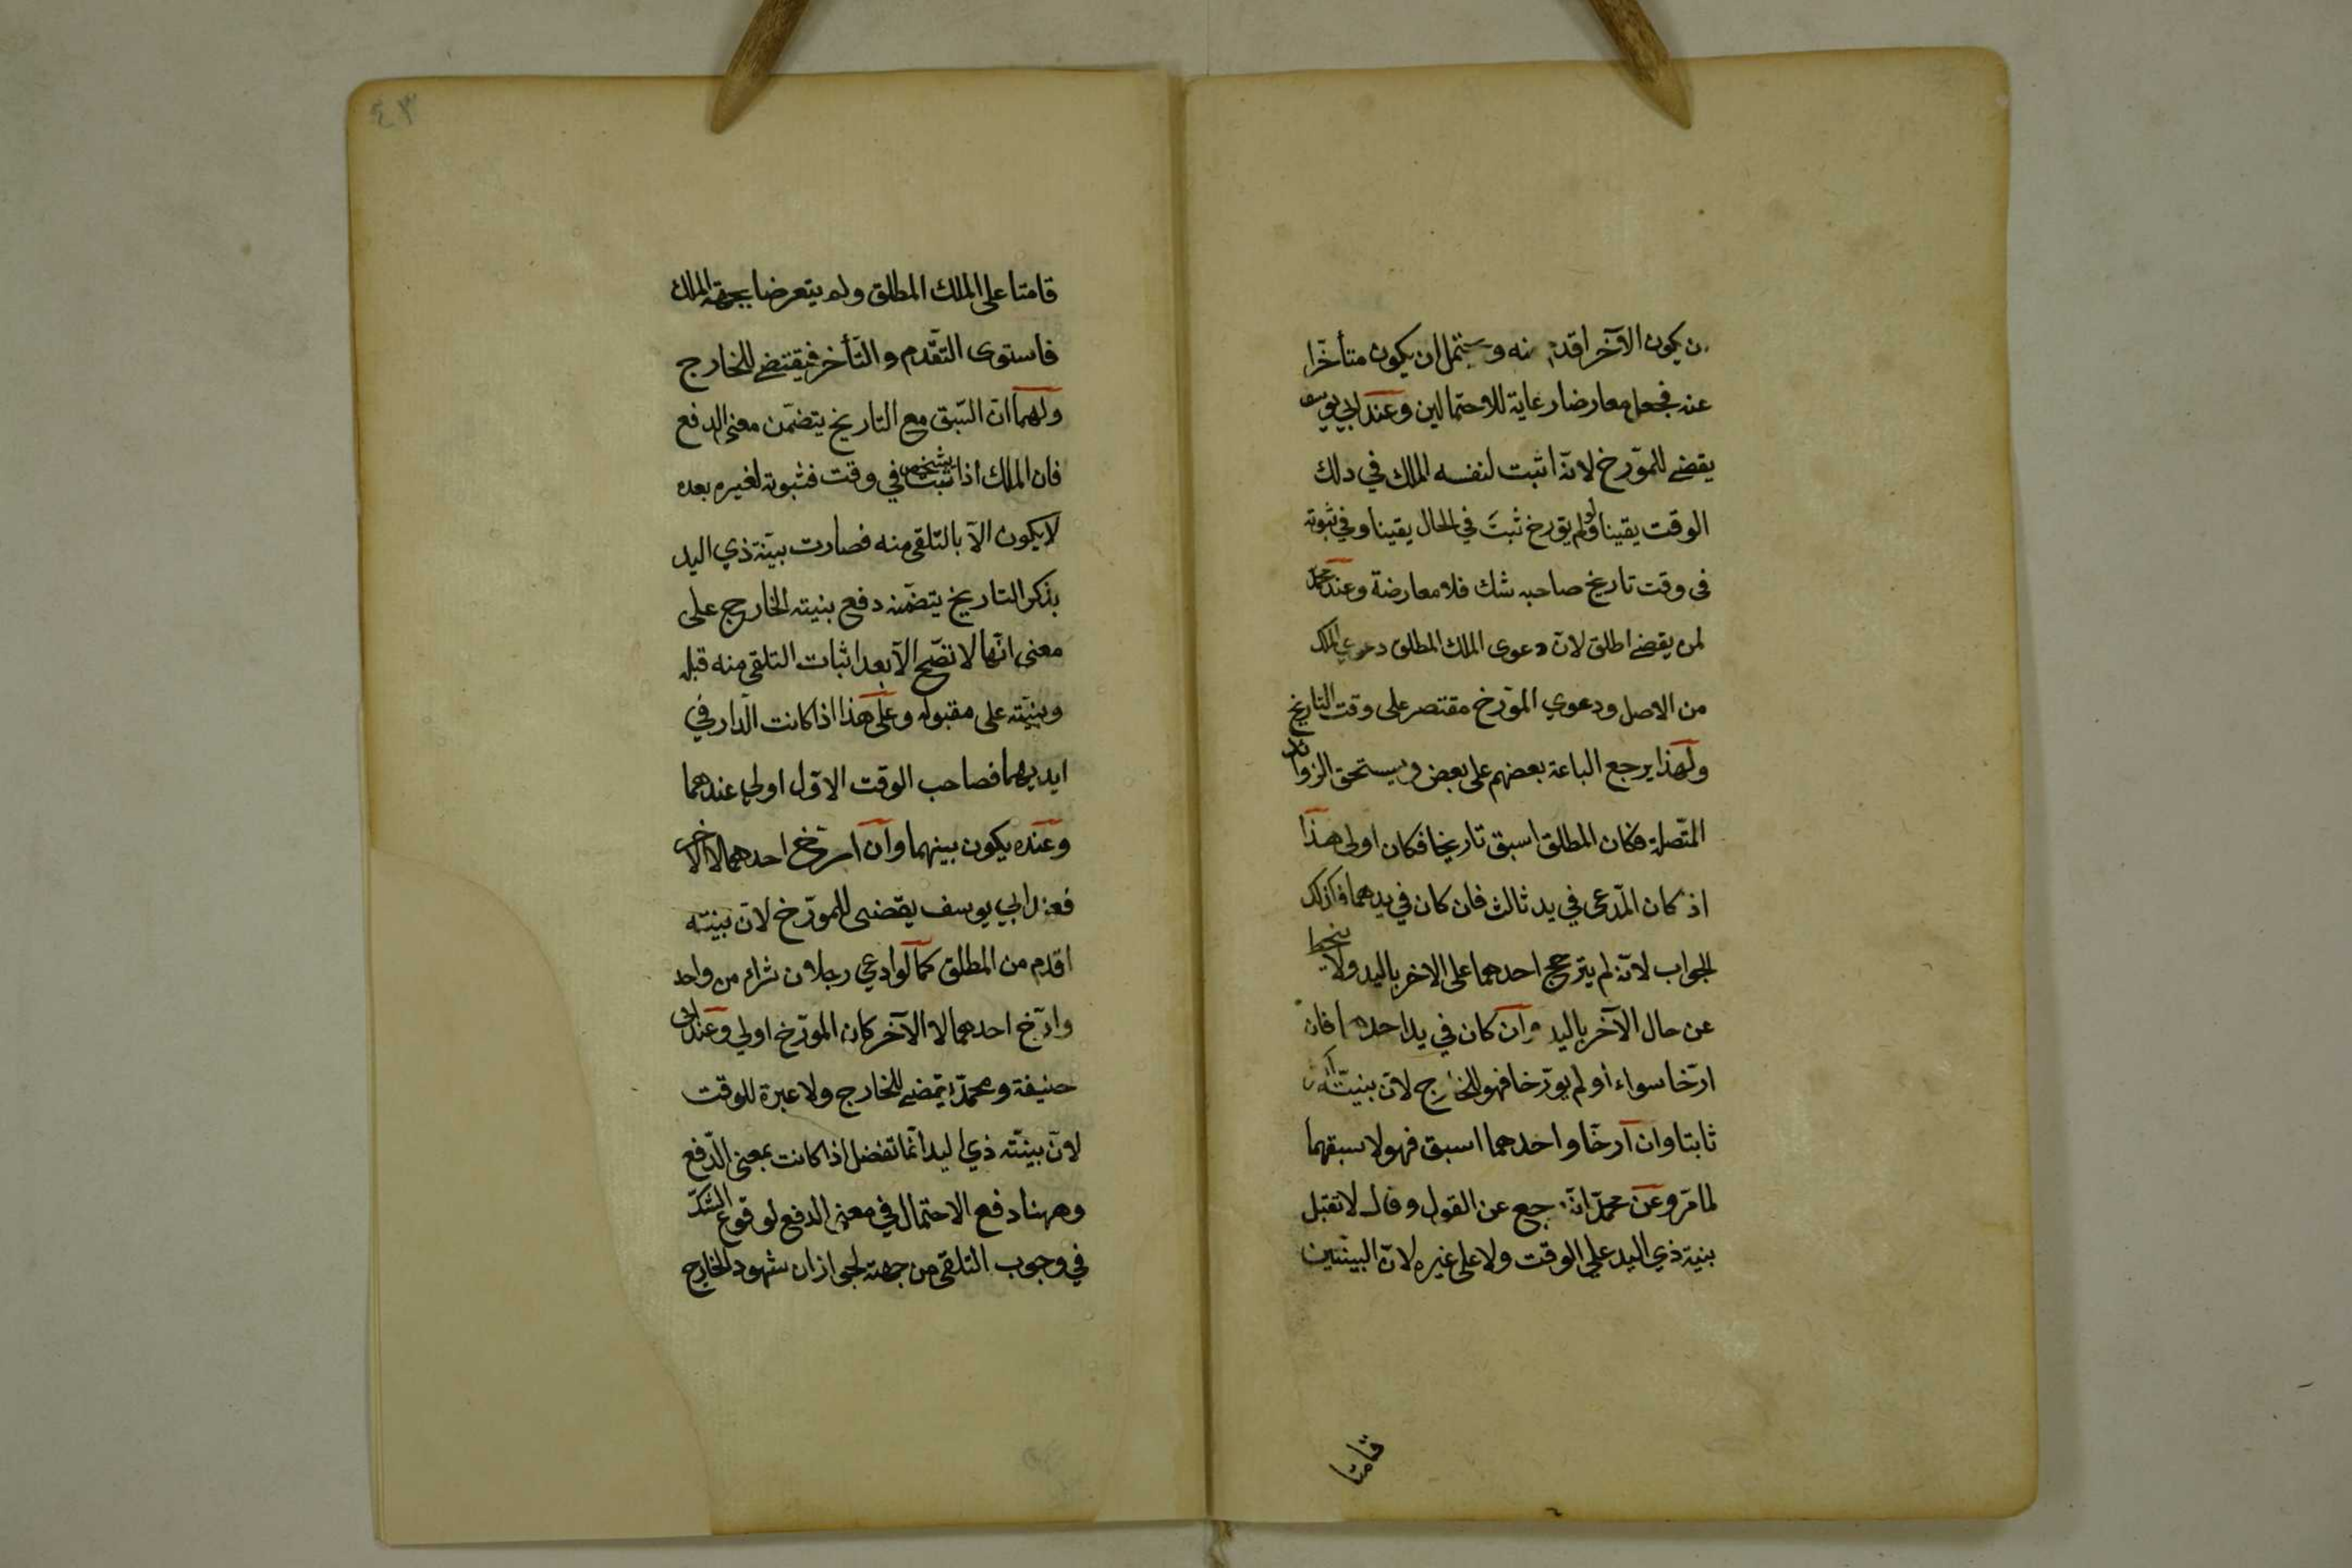 ن يكون الآخر اقدم منه ويحتمل ان يكون متأخرا
عنه فجعل معارضا رعاية للاحتمالين وعند ابي يوسف
يقضي للمؤرخ لانّه اثبت لنفسه الملك في ذلك
الوقت يقينا ولو لم يؤرخ ثبت في الحال يقينا وفي ثبوته
في وقت تاريخ صاحبه شك فلا معارضة وعند محمد
لمن يقضي اطلق لانّ دعوى الملك المطلق دعوي الملك
من الاصل ودعوي المؤرخ مقتصر على وقت التاريخ
ولهذا يرجع الباعة بعضهم على بعض ويستحق الزوائد
المتّصلة فكان المطلق اسبق تاريخا فكان اولى هذا
اذ كان المدّعى في يد ثالث فان كان في يدهما فكذلك
الجواب لانّه لم يترجح احدهما على الاخر باليد ولا ينحط
عن حال الآخر باليد وان كان في يد احدهما فان
ارّخا سواء او لم يؤرّخا فهو للخارج لانّ بينته
ثابتا وان ارّخا واحدهما اسبق فهو لاسبقهما
لما مرّ وعن محمّد انّه رجع عن القول وقال لا تقبل
بنية ذي اليد علي الوقت ولا على غيره لانّ البينتين
قامتا
٤٣
قامتا على الملك المطلق ولم يتعرضا بجهة الملك
فاستوى التقّدم والتّأخر فيقتضي للخارج
ولهما انّ السّبق مع التاريخ يتضمّن معنى الدفع
فان الملك اذا ثبت بشخص في وقت فثبوته لغيره بعده
لا يكون الّا بالتلقى منه فصارت بيّنة ذي اليد
بذكر التاريخ يتضمّنه دفع بنيته الخارج على
معنى انّها لا تصّح الّا بعد اثبات التلقى منه قبله
وبنيّته على مقبوله وعلى هذا اذا كانت الدّار في
ايديهما فصاحب الوقت الاوّل اولى عندهما
وعنده يكون بينهما وان ارّخ احدهما لا الاخر
فعند ابي يوسف يقضى للمورّخ لانّ بينته
اقدم من المطلق كما لو ادعي رجلان شراء من واحد
وارّخ احدهما لا الآخر كان المورّخ اولي وعند ابي
حنيفة ومحمّد يقضي للخارج ولا عبرة للوقت
لانّ بينّته ذي اليد انّما تفضل اذا كانت بمعنى الدّفع
وههنا دفع الاحتمال في معنى الدفع لوقوع الشكّ
في وجوب التلقى من جهته لجواز ان شهود الخارج